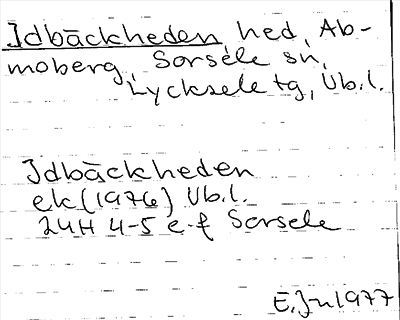 Idbäckheden, hed, Ab-
moberg, Sorsele sn,
Lycksele tg, Vb.l.
Idbäckheden
ek (1976) Vb.l.
24H 4-5 e-f Sorsele
E.Jn 1977